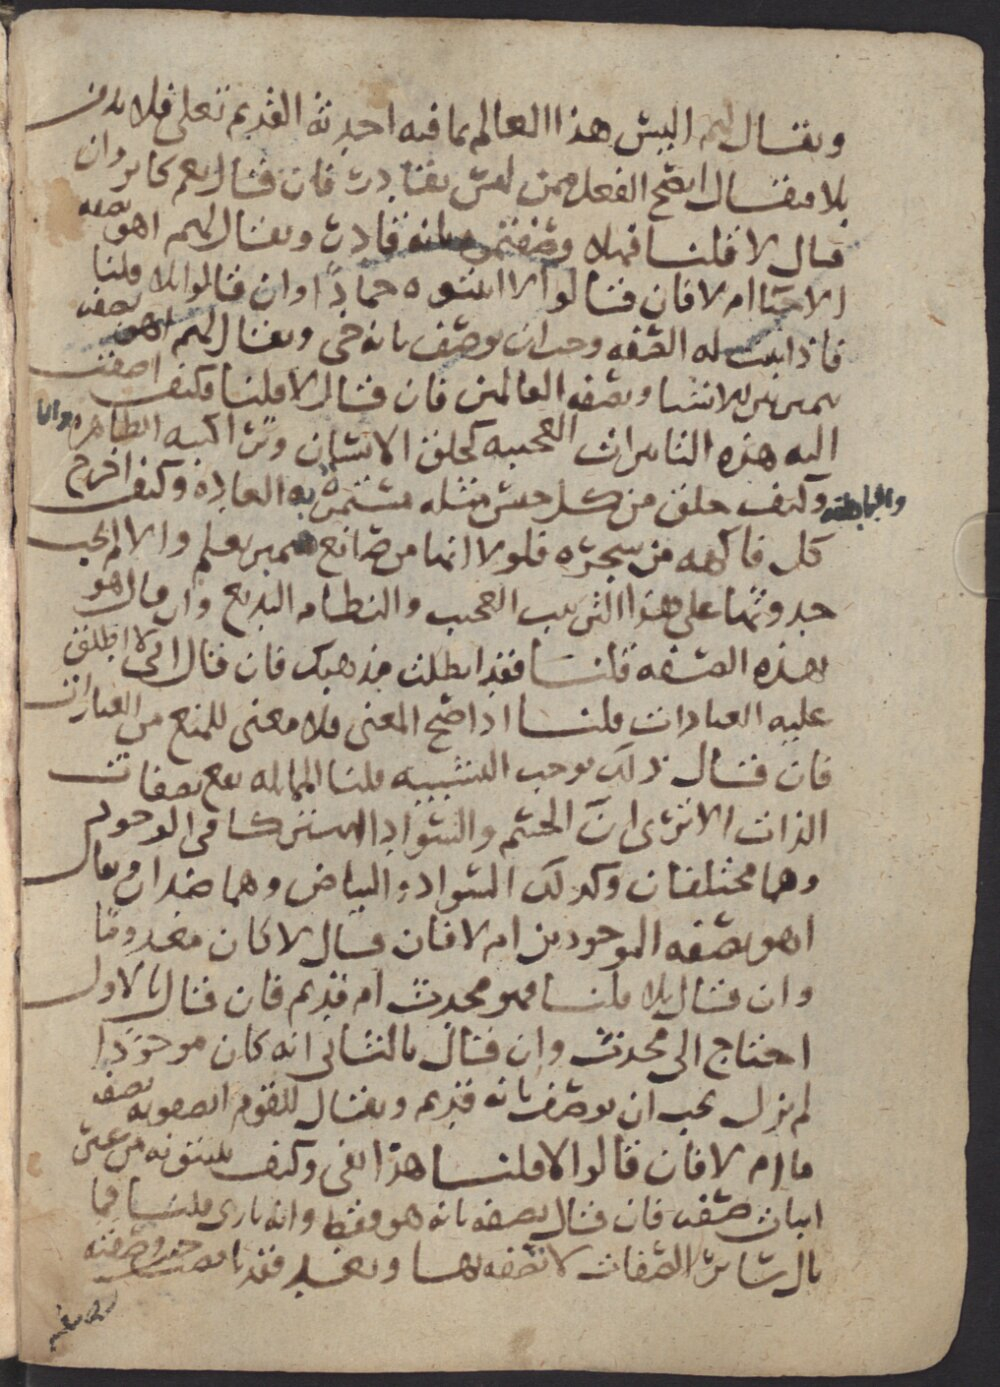 ويقال لهم اليس هذا العالم بما فيه احدثه القديم تعلى فلا بد من
بلا فيقال ايصح الفعل ممن ليس بقادر فان قال نعم كابر وان
قال لا قلنا فهلا وصفتموه بانه قادر ويقال لهم اهو بصفه
الاحيا ام لا فان قالوا لا اثبتوه جمادًا وان قالوا بلا قلنا
فاذا ثبت له الصفه وجب ان يوصف بانه حي ويقال لهم اهو بصفه
من يبين الاشيا وبصفه العالمين فان قال لا قلنا وكيف اضفت
اليه هذه التاثيرات العجيبه كخلق الانسان وتراكيبه الظاهره
والباطنه وكيف خلق من كل جنس مثله مستمره به العاده وكيف اخرج
كل فاكهه من شجره فلولا انها من صانع مميز يعلم والا لم يجب
حدوثها على هذا الترتيب العجيب والنظام البديع وان قال هو
بهذه الصفه قلنا فقد ابطلت مذهبك فان قال اني لا اطلق
عليه العبارات قلنا اذا صح المعنى فلا معنى للمنع من العبارات
فان قال ذلك يوجب التشبيه قلنا المماثله تقع بصفات
الذات الا ترى ان الجسم والسواد اشتركا في الوجود
وهما مختلفان وكذلك السواد والبياض وهما ضدان ويقال
اهو بصفه الموجودين ام لا فان قال لا كان معدومًا
وان قال بلا قلنا فهو محدث ام قديم فان قال بالاول
احتاج الى محدث وان قال بالثاني انه كان موجودًا
لم يزل يجب ان يوصف بانه قديم ويقال للقوم اتصفونه بصفه
ما ام لا فان قالوا لا قلنا هذا نفي وكيف تثبتونه من غير
اثبات صفه فان قال نصفه بانه هو فقط وانه باري قلنا فما
بال سائر الصفات لا تصفه بها وبعد فقد